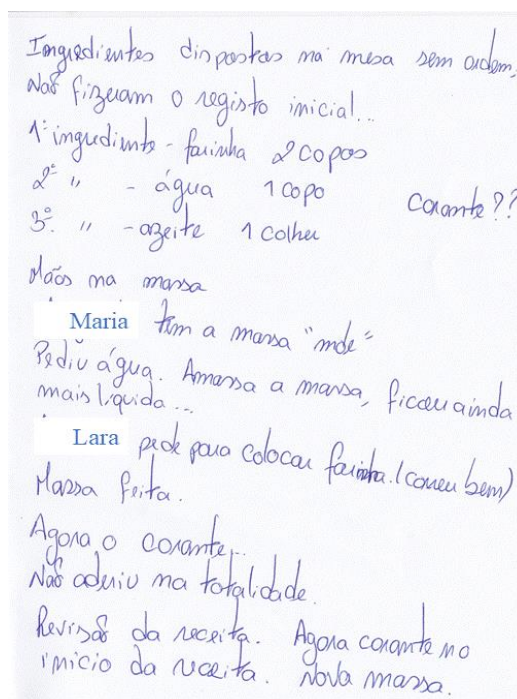 Ingredientes dispostos na mesa sem ordem.
Não fizeram o registo inicial...
1º ingrediente - farinha 2 copos
2º " - água 1 copo
Corante??
3º " - azeite 1 colher
Mãos na massa
Maria tem a massa "mole"
Pediu água. Amassa a massa, ficou ainda
mais líquida...
Lara pede para colocar farinha. (correu bem)
Massa feita.
Agora o corante...
Não aderiu na totalidade.
Revisão da receita. Agora corante no
início da receita. Nova massa.